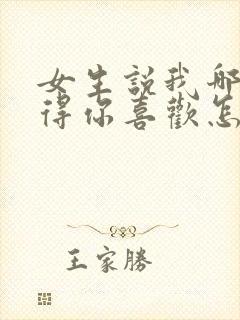 女生説我哪
得你喜歡怎
王家勝